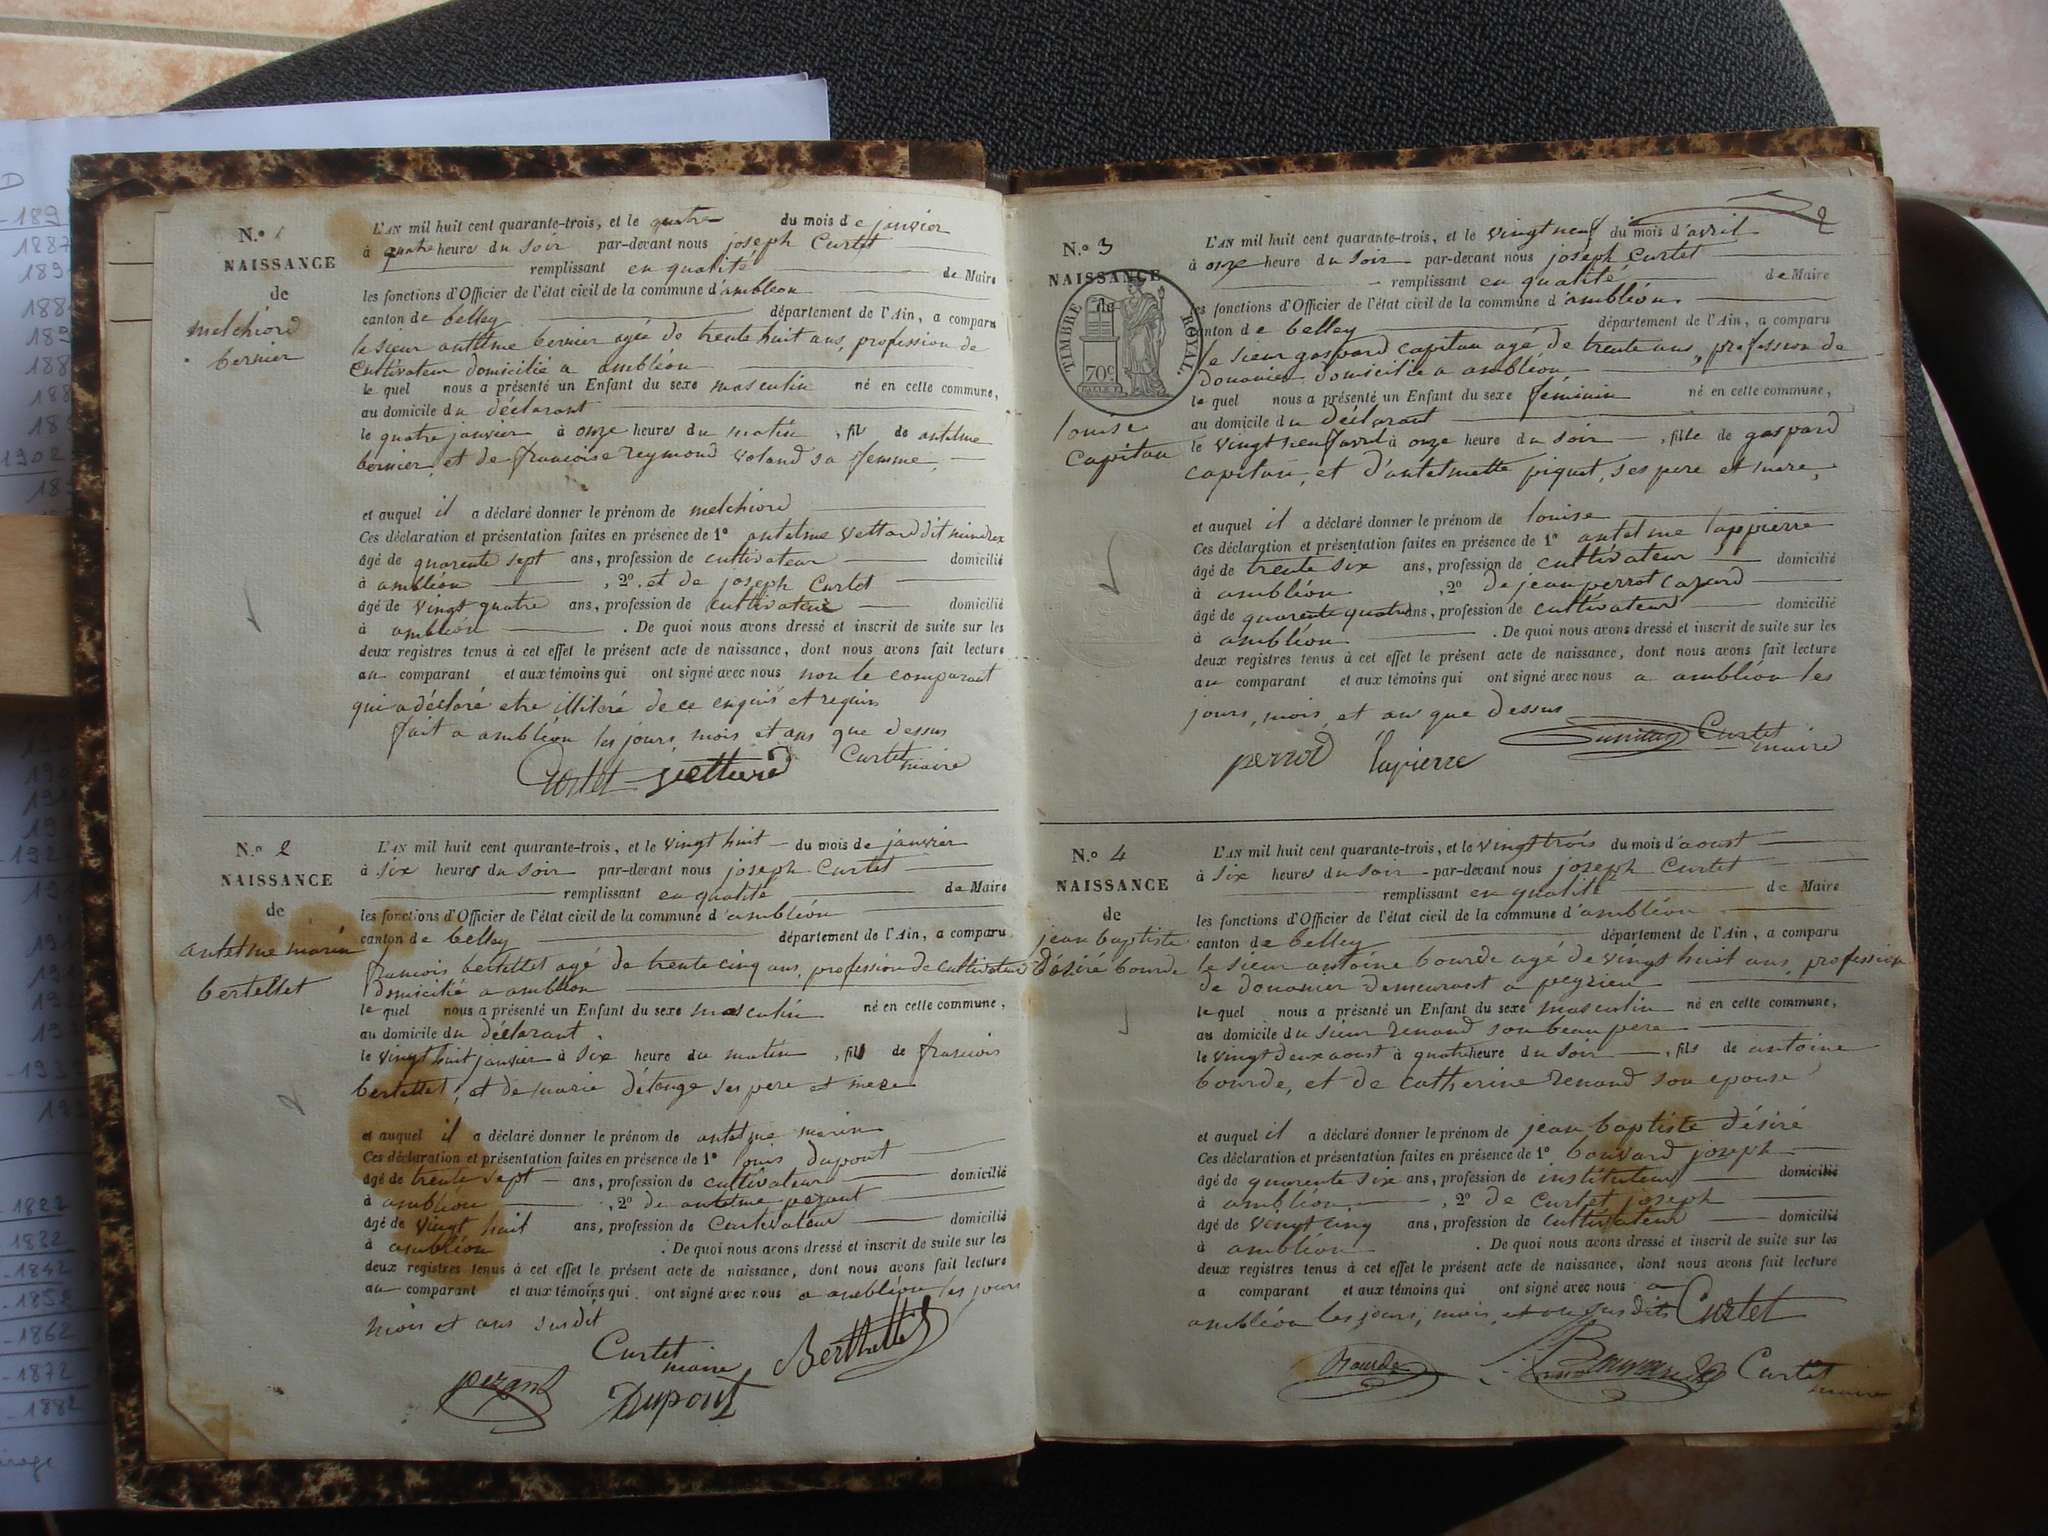 N.º 1
NAISSANCE
de
melchiord
bernier
L'AN mil huit cent quarante-trois, et le quatre du mois de janvier
à quatre heures du soir par-devant nous joseph Curtet
remplissant en qualité de Maire
les fonctions d'Officier de l'état civil de la commune d'ambléon
canton de belley département de l'Ain, a comparu
le sieur antelme bernier agée de trente huit ans, profession de
Cultivateur domicilié a ambléon
le quel nous a présenté un Enfant du sexe masculin né en cette commune,
au domicile du déclarant
le quatre janvier à onze heures du matin, fils de antelme
bernier, et de francoise reymond voland sa femme,
et auquel il a déclaré donner le prénom de melchiord
Ces déclaration et présentation faites en présence de 1º antelme vettard dit
âgé de quarente sept ans, profession de cultivateur domicilié
à ambléon, 2º. et de joseph Curtet
âgé de vingt quatre ans, profession de cultivateur domicilié
à ambléon. De quoi nous avons dressé et inscrit de suite sur les
deux registres tenus à cet effet le présent acte de naissance, dont nous avons fait lecture
au comparant et aux témoins qui ont signé avec nous non le comparant
qui a déclaré etre illiteré de ce enquis et requis
fait a ambléon les jours, mois et ans que dessus
Curtet
maire
Curtet vettard
N.º 2
NAISSANCE
de
antelme marin
bertellet
L'AN mil huit cent quarante-trois, et le vingt huit du mois de janvier
à six heures du soir par-devant nous joseph Curtet
remplissant en qualité de Maire
les fonctions d'Officier de l'état civil de la commune d'ambléon
canton de belley département de l'Ain, a comparu
francois bertellet agé de trente cinq ans, profession de cultivateur
domicilié a ambléon
le quel nous a présenté un Enfant du sexe masculin né en cette commune,
au domicile du déclarant.
le vingt huit janvier à six heure du matin, fils de francois
bertellet, et de marie détange ses pere et mere
et auquel il a déclaré donner le prénom de antelme marin
Ces déclaration et présentation faites en présence de 1º louis dupont
âgé de trente sept ans, profession de cultivateur domicilié
à ambléon, 2º de antelme pezant
âgé de vingt huit ans, profession de Cultivateur domicilié
à ambléon. De quoi nous avons dressé et inscrit de suite sur les
deux registres tenus à cet effet le présent acte de naissance, dont nous avons fait lecture
au comparant et aux témoins qui ont signé avec nous a ambléon les jours
mois et ans susdit
Curtet
maire
Berthellet
pezant
Dupont
2
N.º 3
NAISSANCE
de
TIMBRE ROYAL.
70c
louise
Capitan
L'AN mil huit cent quarante-trois, et le vingt neuf du mois d'avril
à onze heure du soir par-devant nous joseph Curtet
remplissant en qualité de Maire
les fonctions d'Officier de l'état civil de la commune d'ambléon
canton de belley département de l'Ain, a comparu
le sieur gaspard capitan agé de trente ans, profession de
douanier domicilié a ambléon
le quel nous a présenté un Enfant du sexe féminin né en cette commune,
au domicile du déclarant
le vingt neuf avril à onze heure du soir, fille de gaspard
capitan, et d'antelmette piquet, ses pere et mere,
et auquel il a déclaré donner le prénom de louise
Ces déclaration et présentation faites en présence de 1º antelme lappierre
âgé de trente six ans, profession de cultivateur domicilié
à ambléon, 2º de jean perrot
âgé de quarente quatre ans, profession de cultivateur domicilié
à ambléon. De quoi nous avons dressé et inscrit de suite sur les
deux registres tenus à cet effet le présent acte de naissance, dont nous avons fait lecture
au comparant et aux témoins qui ont signé avec nous a ambléon les
jours, mois, et an que dessus
Curtet
maire
perrod lapierre
N.º 4
NAISSANCE
de
jean baptiste
désiré bourde
L'AN mil huit cent quarante-trois, et le vingt trois du mois d'aoust
à six heures du soir par-devant nous joseph Curtet
remplissant en qualité de Maire
les fonctions d'Officier de l'état civil de la commune d'ambléon
canton de belley département de l'Ain, a comparu
le sieur antoine bourde agé de vingt huit ans, profession
de douanier demeurant a peyrieu
le quel nous a présenté un Enfant du sexe masculin né en cette commune,
au domicile du sieur renand son beau pere
le vingt deux aoust à quatre heure du soir, fils de antoine
bourde, et de catherine renand son epouse
et auquel il a déclaré donner le prénom de jean baptiste désiré
Ces déclaration et présentation faites en présence de 1º bouvard joseph
âgé de quarente six ans, profession de instituteur domicilié
à ambléon, 2º de Curtet joseph
âgé de vingt cinq ans, profession de cultivateur domicilié
à ambléon. De quoi nous avons dressé et inscrit de suite sur les
deux registres tenus à cet effet le présent acte de naissance, dont nous avons fait lecture
a comparant et aux témoins qui ont signé avec nous a
ambléon les jours, mois, et an susdits Curtet
Bourde Bouvard Curtet
maire
1822
1832
1842
1852
1862
1872
1882